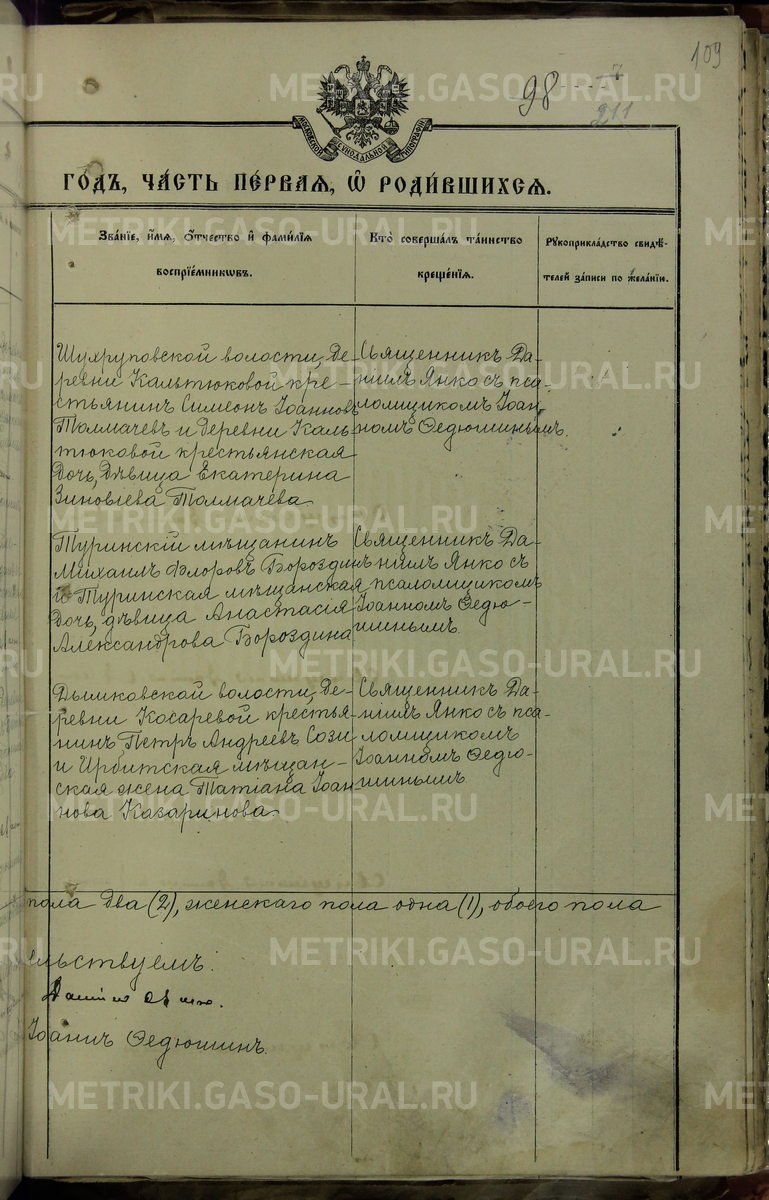 109
98
7
211
МОСКОВСКОЙ СѴНОДАЛЬНОЙ ТИПОГРАФІИ
ГО́ДЪ, ЧА́СТЬ ПЕ́РВАЯ, Ѽ РОДИ́ВШИХСЯ.
Зва́нїе, и҆́мя, ѻ҆́тчество и҆ фами́лїя
воспрїе́мникωвъ.
Кто̀ соверша́лъ та́инство
креще́нїя.
Рꙋкоприкла́дство свидѣ́-
телей за́писи по жела́нїю.
Шухруповской волости, де-
ревни Кальтюковой кре-
стьянинъ Симеонъ Іоанновъ
Толмачевъ и деревни Каль-
тюковой крестьянская
дочь, дѣвица Екатерина
Зиновіева Толмачева.
Священникъ Да-
ніилъ Янко съ пса-
ломщикомъ Іоан-
номъ Ѳедюшинымъ.
Туринскій мѣщанинъ
Михаилъ Флоровъ Бороздинъ
и Туринская мѣщанская
дочь, дѣвица Анастасія
Александрова Бороздина
Священникъ Да-
ніилъ Янко съ
псаломщикомъ
Іоанномъ Ѳедю-
шинымъ.
Дымковской волости, де-
ревни Косаревой крестья-
нинъ Петръ Андреевъ Сози
и Ирбитская мѣщан-
ская жена Татіана Іоан-
нова Казаринова.
Священникъ Да-
ніилъ Янко съ пса-
ломщикомъ
Іоанномъ Ѳедю-
шинымъ
пола два (2), женскаго пола одна (1), обоего пола
ельствуемъ.
Іоаннъ Ѳедюшинъ.
METRIKI.GASO-URAL.RU